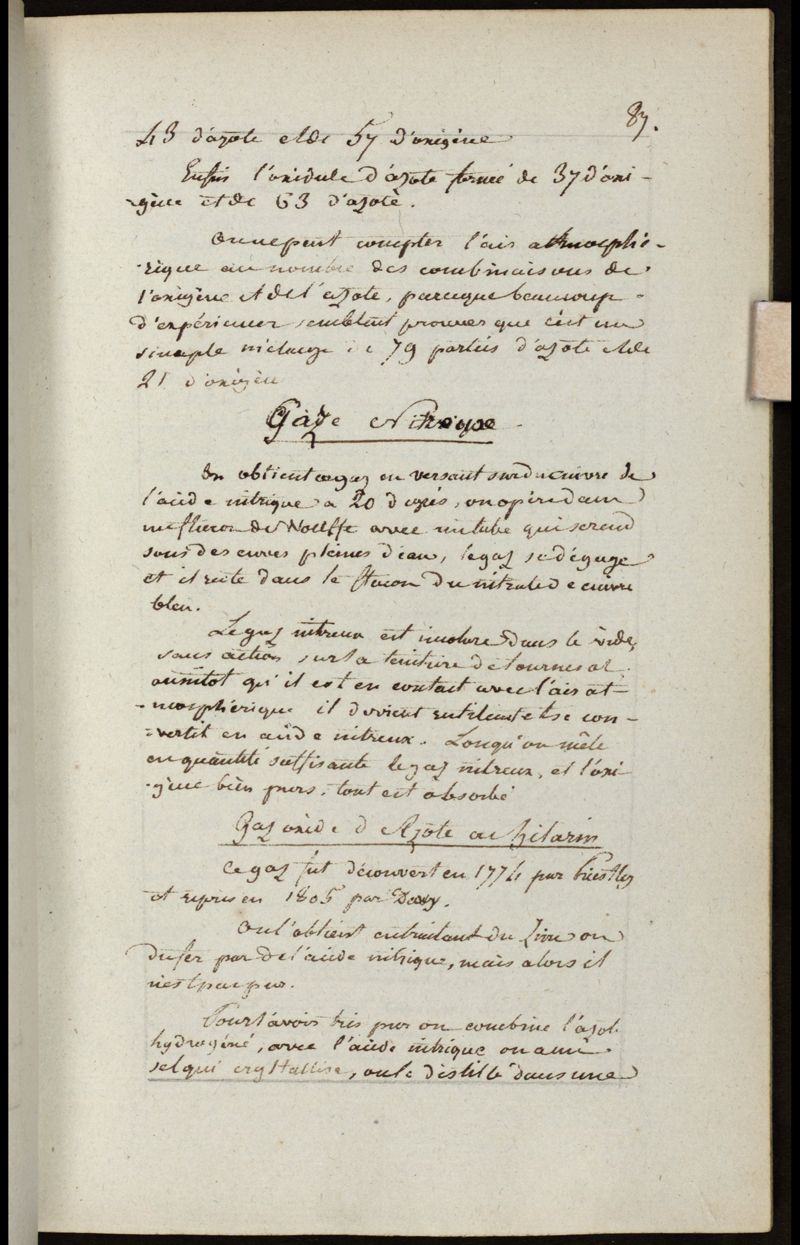 87.
43 d'azote et de 57 d'oxigène
Enfin l'oxidule d'azote formé de 37 d'oxi-
gène et de 63 d'azote.
On ne peut compter l'air atmosphé-
rique au nombre des combinaisons de
l'oxigène et de l'azote, parceque beaucoup
d'expériences semblent prouver que c'est un
simple mélange de 79 parties d'azote et de
21 d'oxigène
Gaz Nitreux
On obtient ce gaz en versant sur du cuivre de
l'acide nitrique a 20 degrés, on opère dans
un flacon de Woulffe avec un tube qui se rend
sous des cuves pleines d'eau, le gaz se dégage
et il reste dans le flacon du nitrate de cuivre
bleu.
Le gaz nitreux est incolore dans le vide,
sans action sur la teinture de tournesol
aussitot qu'il est en contact avec l'air at-
mosphérique il devient rutilant et se con-
vertit en acide nitreux. Lorsqu'on mêle
en quantité suffisante le gaz nitreux, et l'oxi-
gène bien purs, tout est absorbé
Gaz oxide d'Azote ou hilarin
Ce gaz fut découvert en 1774 par Priestley
et repris en 1805 par Davy.
On l'obtient en traitant du Zinc ou
du fer par de l'acide nitrique, mais alors il
n'est pas pur.
Pour l'avoir très pur on combine l'azot
hydrogéné, avec l'acide nitrique on a un
sel qui crystallise, on le distille dans une